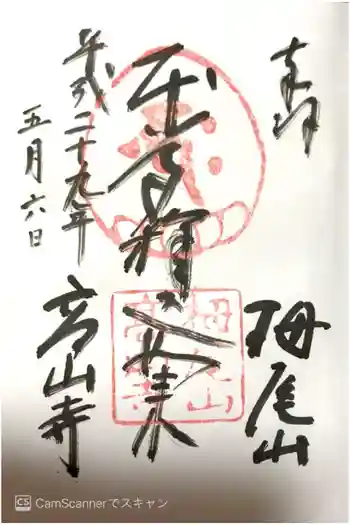 奉拝
栂尾山
釋迦如来
平成二十九年
五月六日
高山寺
栂尾山
高山寺
CS CamScannerでスキャン